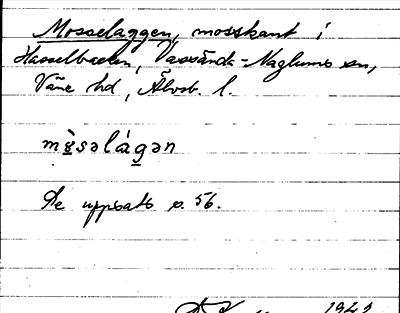 Mosselaggen, mosskant i
Hasselbacken, Vassända-Naglums sn,
Väne hd, Älvsb. l.
mȯ̤səlágən
Se uppsats s. 56.
1942